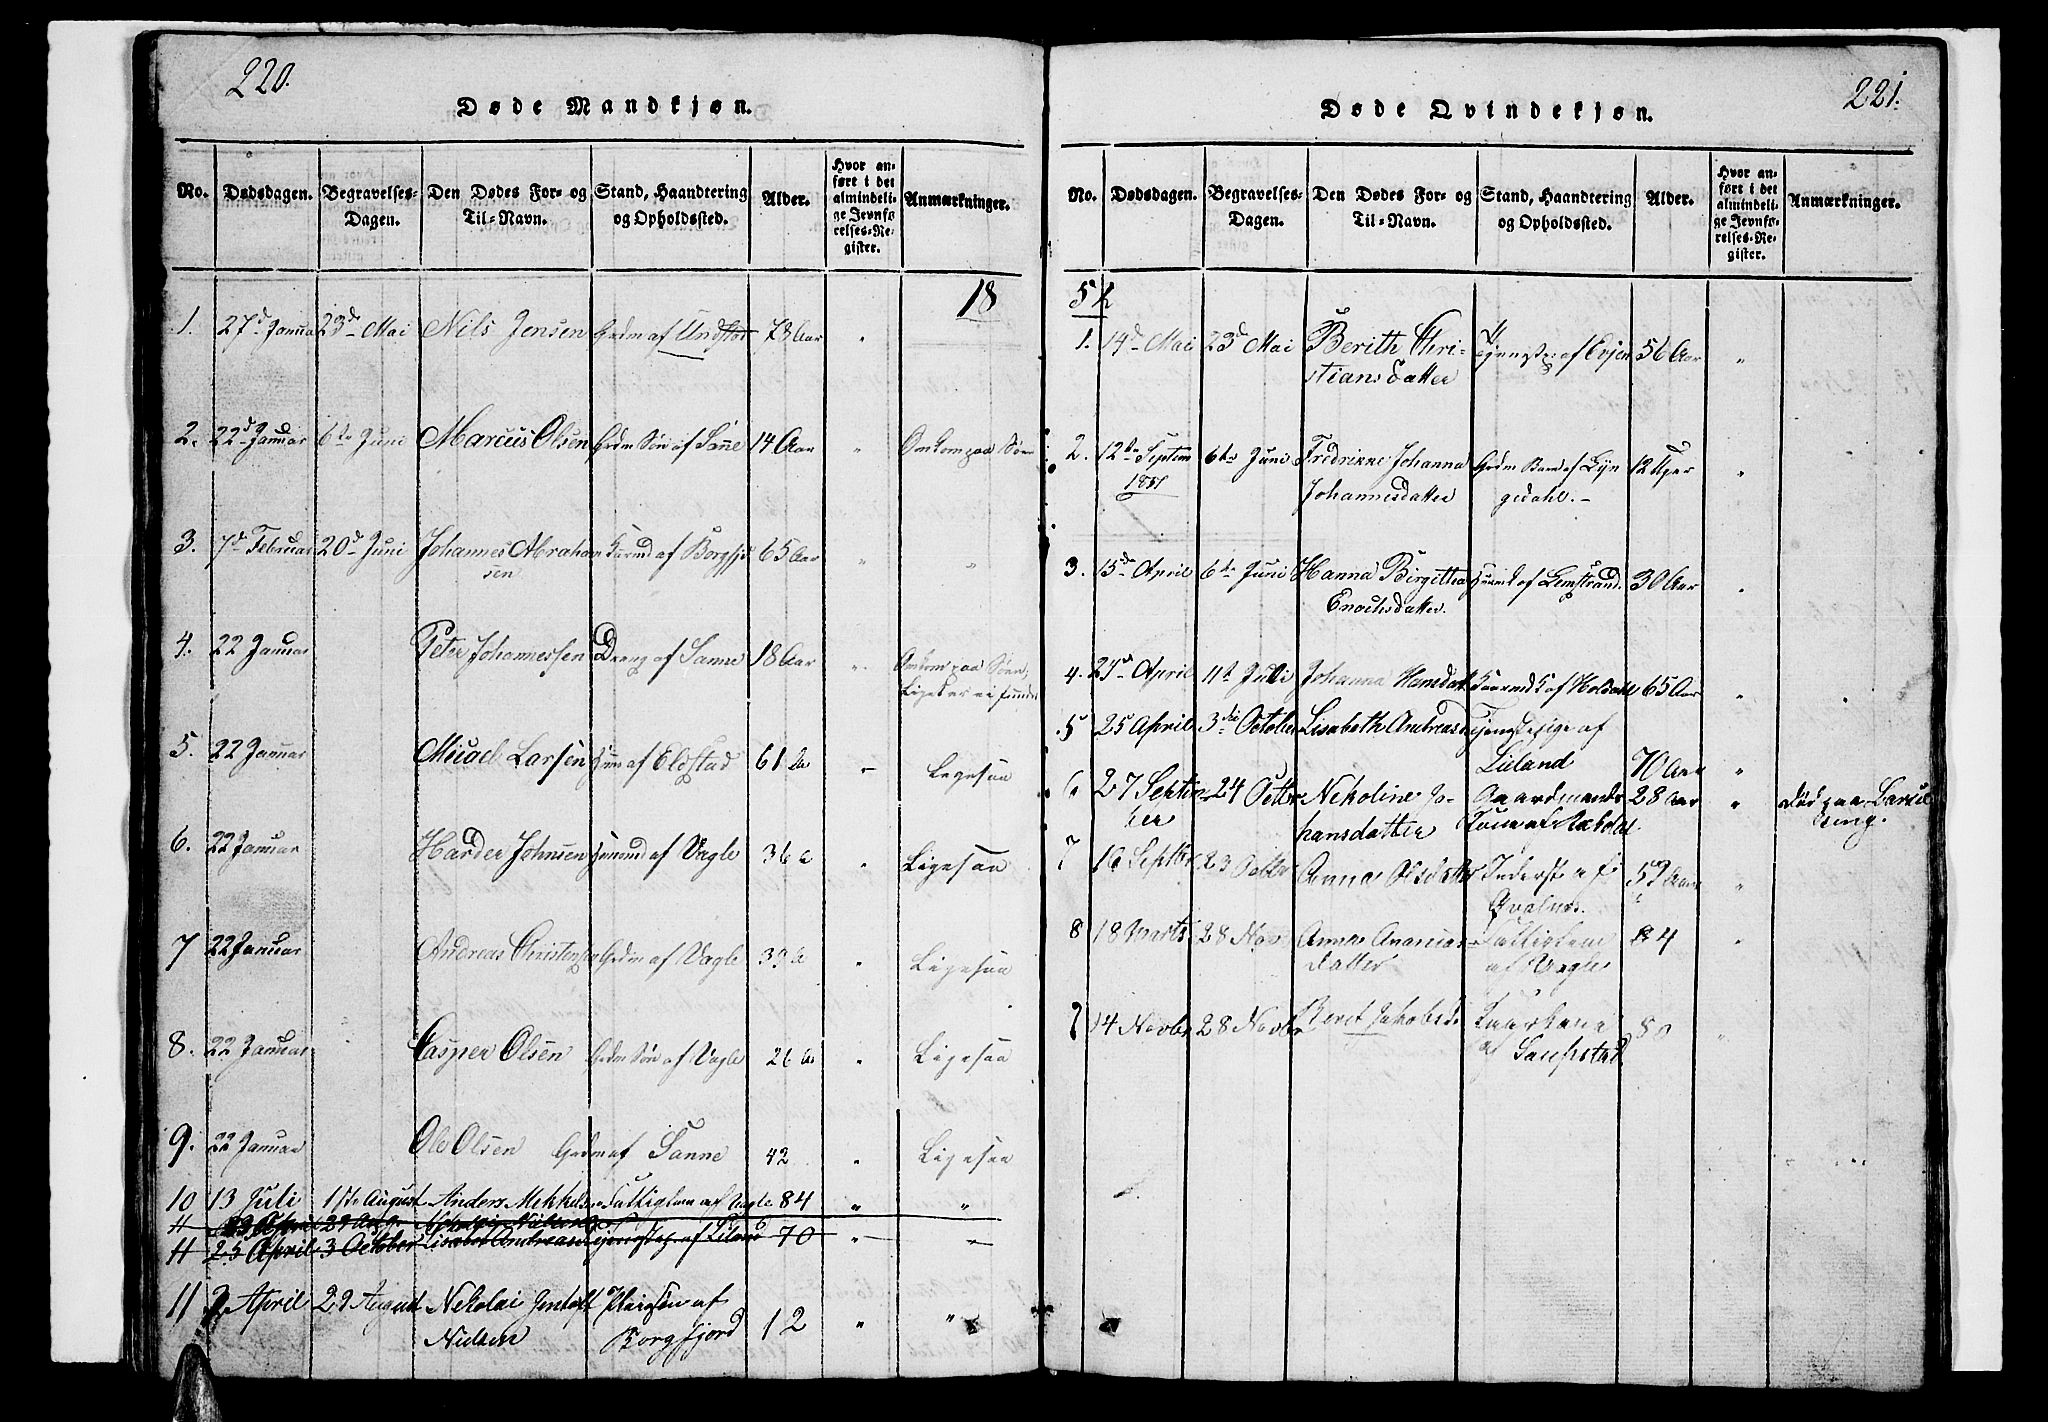 220.
Døde Mandkjøn.
No. Dødsdagen. Begravelses-Dagen. Den Dødes For- og Til-Navn. Stand, Haandtering og Opholdssted. Alder. Hvor anført i det almindelige Jevnførelses-Register. Anmærkninger.
18
1. 27d Janua 23d Mai Nils Jensen Gdm af Undstad 78 Aar "
2. 22d Januar 6te Juni Marcus Olsen Gdm Søn af Sanne 14 Aar " Omkom paa Søen
3. 7d Februar 20d Juni Johannes Abraham
sen Kaarmd af Borgfjd 65 Aar " "
4. 22 Januar Peter Johannessen Dreng af Sanne 18 Aar " Omkom paa Søen,
Liget er ei funden
5. 22 Januar Micael Larsen af Eldstad 61 A - Ligesaa
6. 22 Januar Harder Johnsen af Vagle 36 A " Ligesaa
7 22 Januar Andreas Christensen Gdm af Vagle 39 A " Ligesaa
8. 22 Januar Casper Olsen Gdm Søn af Vagle 26 Aar " Ligesaa
9. 22 Januar Ole Olsen Gdm af Sanne 42 " Ligesaa
10 13 Juli 1ste August Anders Mikkelsen Fattiglem af Vagle 84 " "
11 29 April 29 Aug.
11 25 April 3 October Lisabet Andreasd Tjenstep. af Liland 70 " "
11 2 April 29 August Nekolai Jentoft
Nielsen Pleiesøn af
Borgfjord 12 " "
221.
Døde Qvindekjøn.
No. Dødsdagen. Begravelses-Dagen. Den Dødes For- og Til-Navn. Stand, Haandtering og Opholdssted. Alder. Hvor anført i det almindelige Jevnførelses-Register. Anmærkninger.
52
1. 14d Mai 23d Mai Berith Chri-
stiansdatter Tjenstep: af Evjen 56 Aar "
2. 12te Septem
1851 6te Juni Fredrikke Johanna
Johannesdatter Gdm Barn af Lyn
gedahl. - 12 Uger "
3. 15d April 6te Juni Hanna Birgitha
Enochsdatter. af Lemstrand. 30 Aar "
4. 27d April 11t Juli Johanna Hansdatt Kaarmd K af Holdahl 65 Aar "
5 25 April 3die October Lisabeth Andreasd Tjenstepige af
Liland 70 Aar "
6 27 Septem
ber 24 Octbr Nekoline Jo-
hansdatter Gaardmands
Kone af 28 Aar " Død paa Barsel
seng.
7 16 Septbr 23 Octbr Anna Olsdatter Inderst af
Qvalnes. 59 Aar "
8 18 Marts 28 Nov Anna Ananias-
datter Fattiglem
af Vagle 84 "
9 14 Novbr 28 Novbr Beret Jakobsd Kaarkone
af Saupstad 80 "